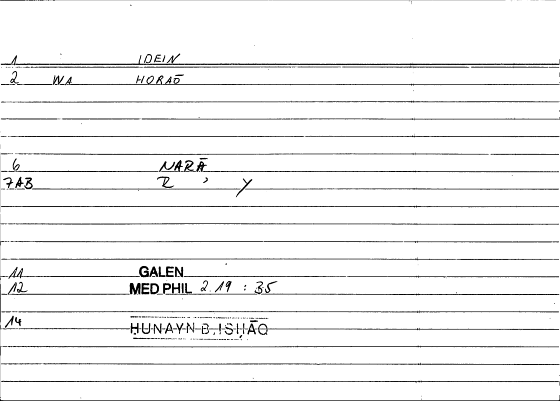 1 IDEIN
2 WA HORAŌ
6 NARĀ
7AB R ' y
11 GALEN
12 MED PHIL 2.19 : 35
14 HUNAYN B. ISḤĀQ